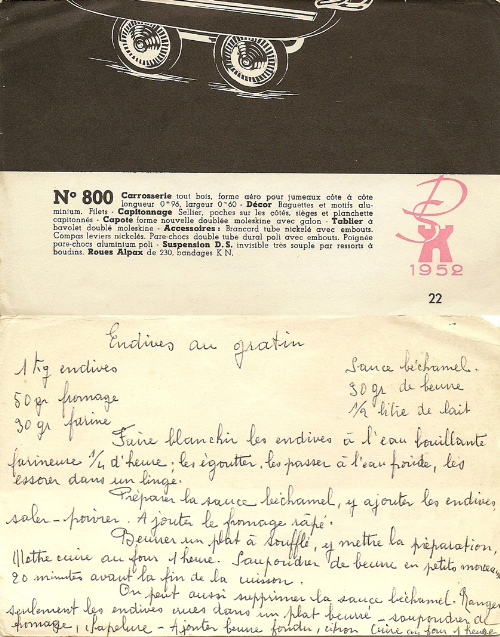 Nº 800 Carrosserie tout bois, forme aéro pour jumeaux côte à côte
longueur 0ᵐ96, largeur 0ᵐ60 - Décor Baguettes et motifs alu-
minium. Filets - Capitonnage Sellier, poches sur les côtés, sièges et planchette
capitonnés - Capote forme nouvelle doublée moleskine avec galon - Tablier à
bavolet doublé moleskine - Accessoires : Brancard tube nickelé avec embouts.
Compas leviers nickelés. Pare-chocs double tube dural poli avec embouts. Poignée
pare-chocs aluminium poli - Suspension D.S. invisible très souple par ressorts à
boudins. Roues Alpax de 230, bandages K N.
DS
1952
22
Endives au gratin
1 Kg endives
50 gr fromage
30 gr farine
Sauce béchamel.
30 gr de beurre
1/2 litre de lait
Faire blanchir les endives à l'eau bouillante
farineuse 1/4 d'heure ; les égoutter, les passer à l'eau froide, les
essorer dans un linge.
Préparer la sauce béchamel, y ajouter les endives
saler - poivrer. Ajouter le fromage râpé.
Beurrer un plat à soufflé, y mettre la préparation,
Mettre cuire au four 1 heure. Saupoudrer de beurre en petits morceaux
20 minutes avant la fin de la cuisson.
On peut aussi supprimer la sauce béchamel. Ranger
seulement les endives crues dans un plat beurré - saupoudrer de
fromage, chapelure - Ajouter beurre fondu citron Cuire au four 1 heure